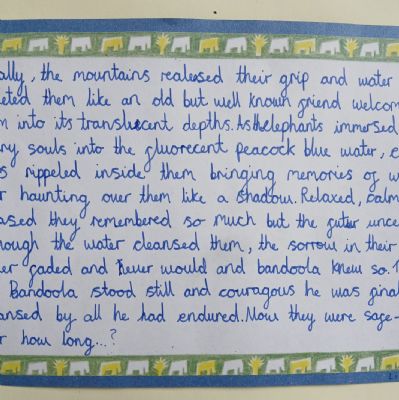 ally, the mountains realesed their grip and water
eted them like an old but well known friend welcom
m into its translucent depths. As the elephants immersed
ry souls into the fluorecent peacock blue water, e
s rippeled inside them bringing memories of w
r haunting over them like a shadow. Relaxed, calm
ased they remembered so much but the futer unce
hough the water cleansed them, the sorrow in their
er faded and never would and bandoola knew so. T
Bandoola stood still and couragous he was final
ansed by all he had endured. Now they were safe-
r how long...?